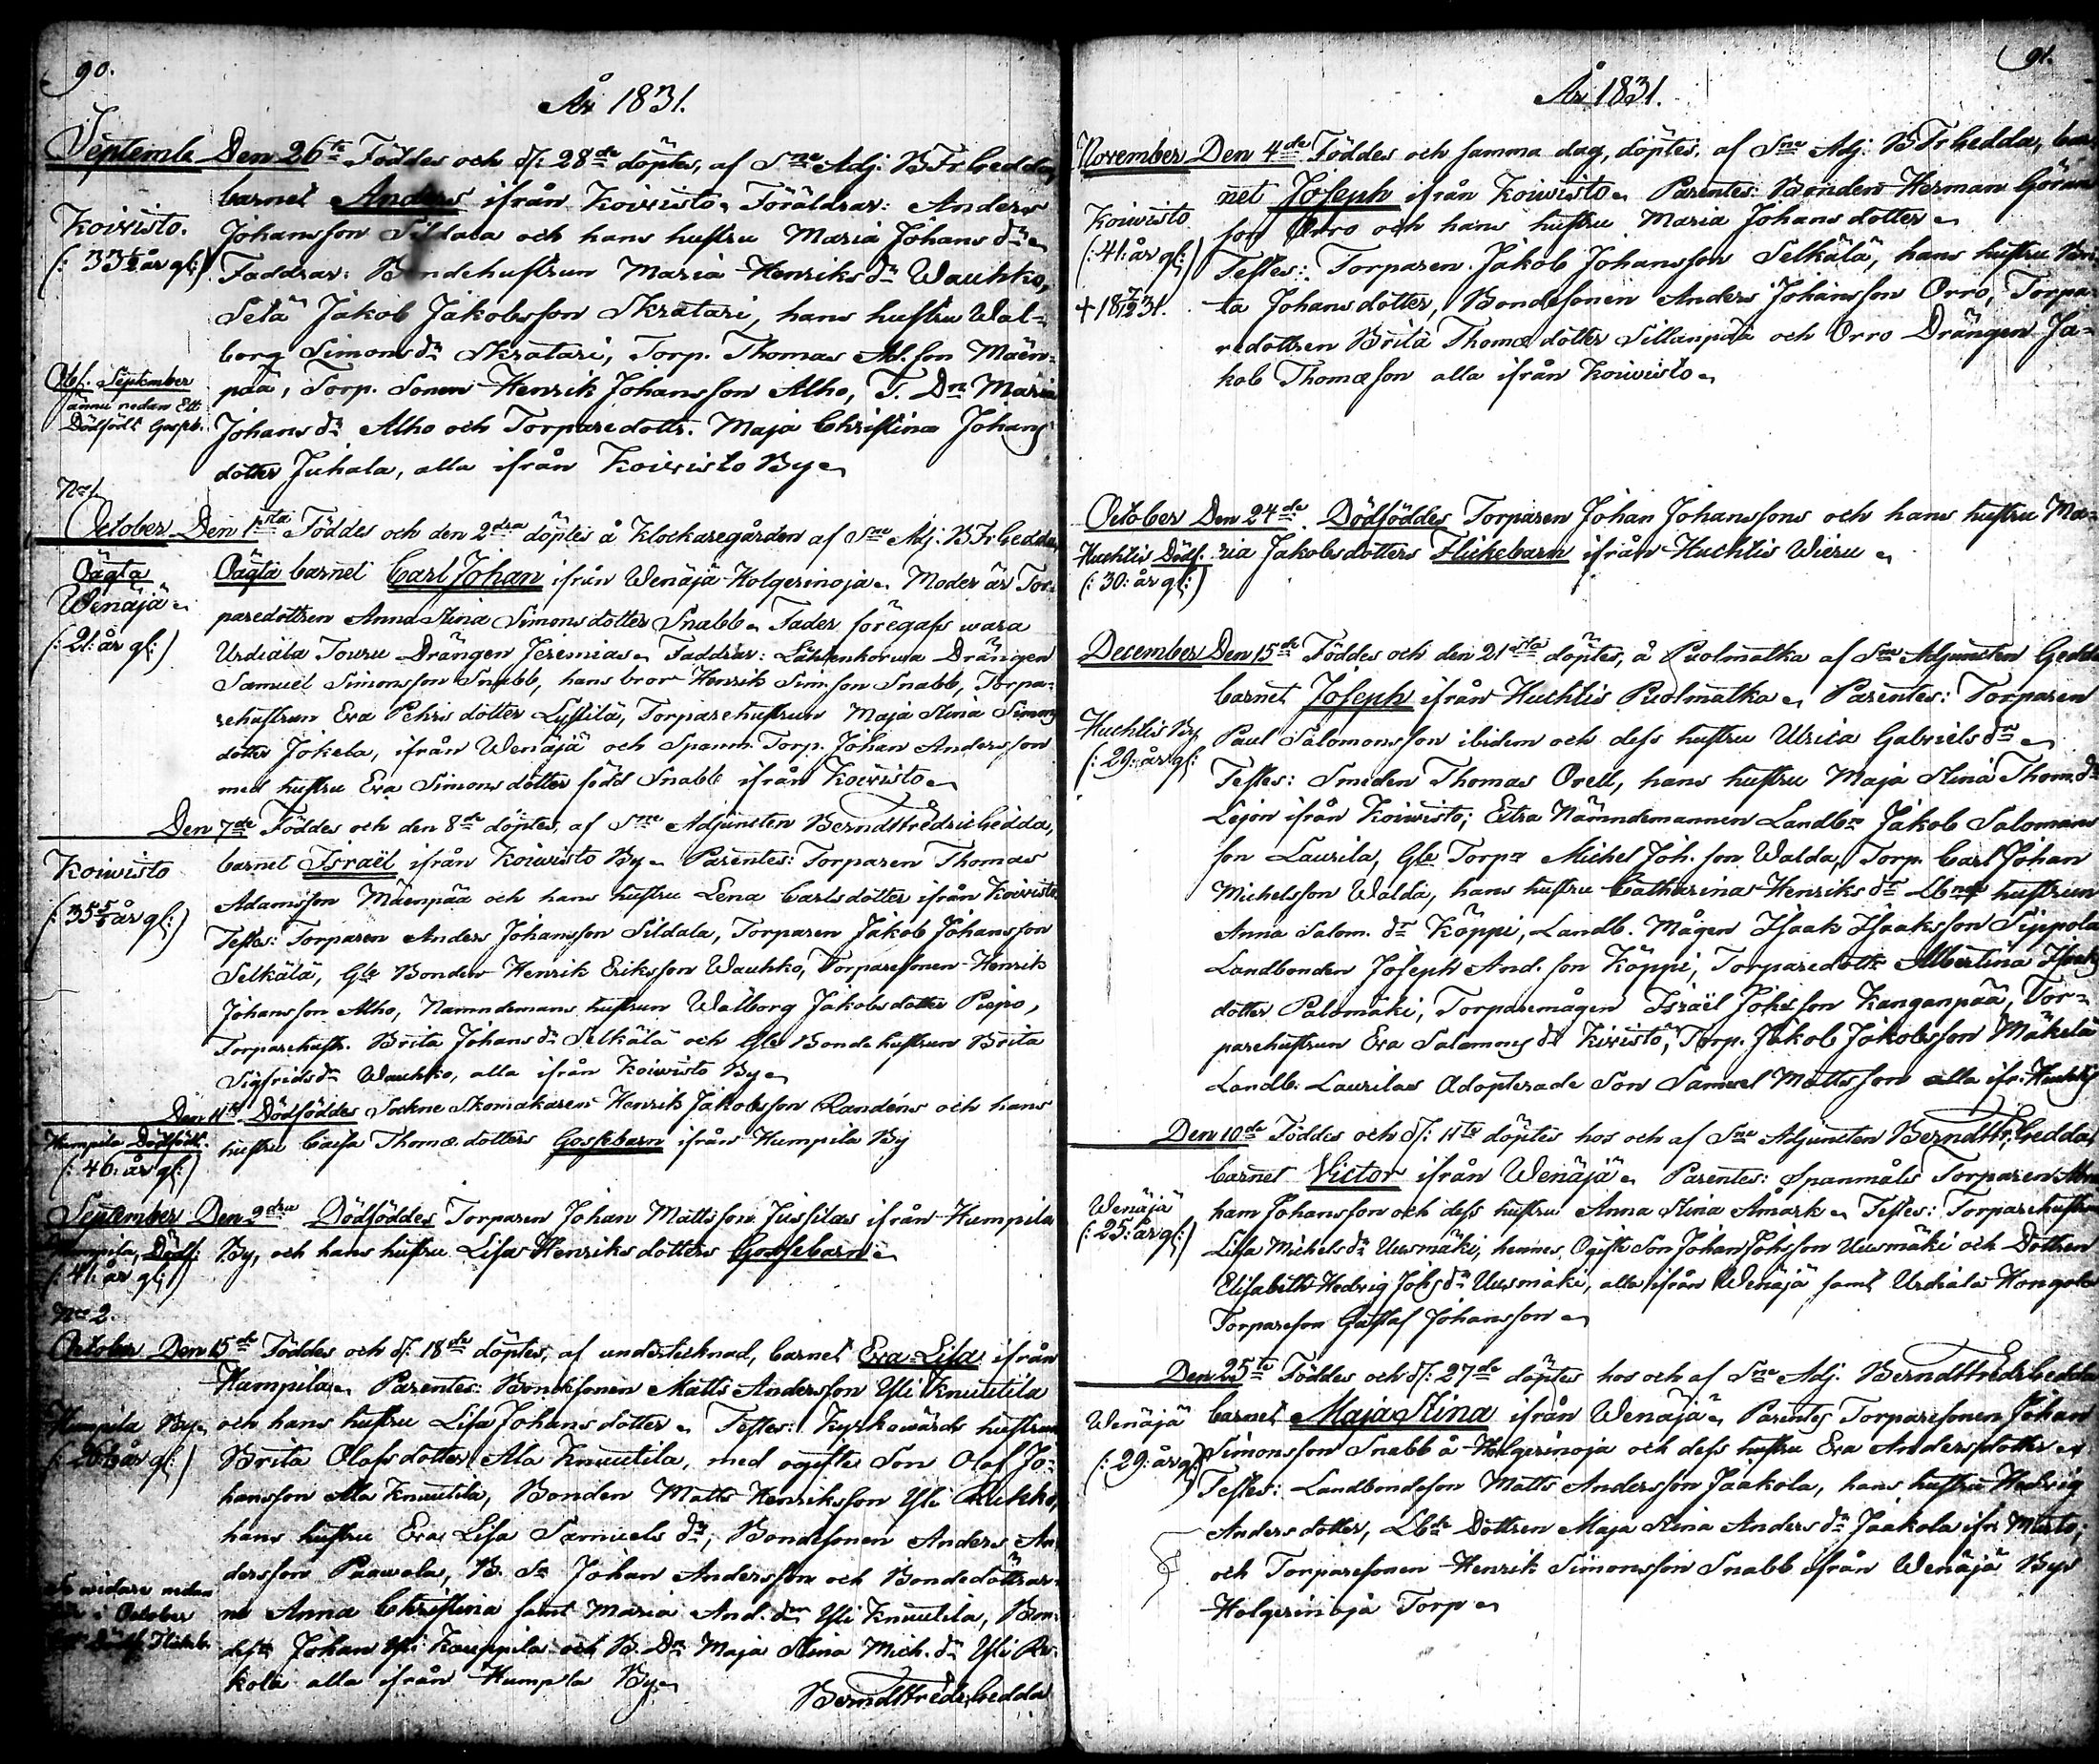 90.
År 1831.
Septemb. Den 26te Föddes och d: 28de döptes, af Sne Adj: B Fr Gedda,
barnet Anders ifrån Koivisto. Föräldrar: Anders
Koivisto.
Johansson Sildala och hans hustru Maria Johans dr
(: 33½ år gl:)
Faddrar: Bondehustrun Maria Henriks dr Wauhko,
Setä Jakob Jakobsson Skratari, hans hustru Wal-
borg Simons dr Skratari, Torp. Thomas Ad. son Mäen-
Obs. September
ännu nedan Ett
Dödfödt Gosseb.
pää, Torp. Sonen Henrik Johansson Alho, T. Dn Maria
Johans dr Alho och Torparedottr. Maja Christina Johans
dotter Juhala, alla ifrån Koivisto By
No 1.
October Den 1sta Föddes och den 2dra döptes å Klockaregården af Sne Adj. B Fr Gedda,
Oägta
Wenäjä
(: 21: år gl:)
Oägta barnet Carl Johan ifrån Wenäjä Holgerinoja. Moder är Tor-
paredottren Anna Stina Simonsdotter Snabb. Fader föregafs wara
Urdiala Touru Drängen Jeremias. Faddrar: Drängen
Samuel Simonsson Snabb, hans bror Henrik Sim.son Snabb, Torpa-
rehustrun Eva Pehrsdotter Lyttilä, Torparehustrun Maja Stina Simons
dotter Jokela, ifrån Wenäjä och Spanm. Torp. Johan Andersson
med hustru Eva Simonsdotter född Snabb ifrån Koivisto
Den 7de Föddes och den 8de döptes, af Sne Adjuncten Berndt Fredric Gedda,
Koivisto
(: 35 år gl:)
barnet Israël ifrån Koivisto By. Parentes: Torparen Thomas
Adamsson Mäenpää och hans hustru Lena Carlsdotter ifrån Koivisto
Testes: Torparen Anders Johansson Sildala, Torparen Jakob Johansson
Selkälä, Gle Bonden Henrik Eriksson Wauhko, Torparesonen Henrik
Johansson Alho, Namndemans hustrun Walborg Jakobsdotter Piepo,
Torparehustr. Brita Johans dr Selkälä och Gle Bonde hustrun Brita
Sigfrids dr Wauhko, alla ifrån Koivisto By
Den 11te Dödföddes Sockne Skomakaren Henrik Jakobsson Randéns och hans
Humpila Dödfödt.
(: 46: år gl:)
hustru Caisa Thomæ dotters Gossebarn ifrån Humpila By
September Den 2dra Dödföddes Torparen Johan Mattsson Jussilas ifrån Humpila
Humpila, Dödf:
(: 41: år gl:)
By, och hans hustru Lisa Henriksdotters Gossebarn
No 2.
October Den 15de Föddes och d: 18de döptes, af undertecknad, barnet Eva Lisa ifrån
Humpila. Parentes: Bondesonen Matts Andersson Yli Knuutila
Humpila By
(: 26 år gl:)
och hans hustru Lisa Johansdotter. Testes: Kyrkowärds hustrun
Brita Olofsdotter Ala Knuutila, med ogifte Son Olof Jo-
hansson Ala Knuutila, Bonden Matts Henriksson Yli Rukko,
hans hustru Eva Lisa Samuels dr, Bondesonen Anders An-
dersson Paavola, B. Sn Johan Andersson och Bondedöttrar-
Se widare nedan
i October
Dödf. Flickb.
na Anna Christina samt Maria And. dr Yli Knuutila, Bon-
de Johan Yli Kauppila och B. Dn Maja Stina Mich. dr Yli
kola alla ifrån Humpla By
Berndt Fredr. Gedda
91.
År 1831.
November Den 4de Föddes och samma dag, döptes, af Sne Adj: B Fr Gedda, bar-
net Joseph ifrån Koivisto. Parentes: Bonden Herman Görans
Koivisto
(: 41: år gl:)
+ 18 31.
son Orro och hans hustru Maria Johansdotter
Testes: Torparen Jakob Johansson Selkälä, hans hustru Bri-
ta Johansdotter, Bondesonen Anders Johansson Orro, Torpa-
redottren Brita Thomædotter Sillanpää och Orro Drängen Ja-
kob Thomæson alla ifrån Koivisto
October Den 24de. Dödföddes Torparen Johan Johanssons och hans hustru Ma-
Huchtis Dödf.
(: 30: år gl:)
ria Jakobsdotters Flickebarn ifrån Huchtis Wieru
December Den 15de Föddes och den 21sta döptes, å Puolmatka af Sne Adjuncten Gedda
barnet Joseph ifrån Huchtis Puolmatka. Parentes: Torparen
Huchtis By
(: 29: år gl:
Paul Salomonsson ibidem och dess hustru Ulrica Gabriels dr
Testes: Smeden Thomas Orell, hans hustru Maja Stina Thom. dr
Lejon ifrån Koivisto; Extra Nämndemannen Landbn Jakob Salomons
son Laurila, Gle Torpn Michel Joh. son Walda, Torp. Carl Johan
Michelsson Walda, hans hustru Catharina Henriks dr Lbns hustrun
Anna Salom. dr Köppi, Landb. Mågen Isaak Isaksson Sippola
Landbonden Joseph And. son Köppi, Torparedottr Albertina Isaks
dotter Palomäki, Torparemågen Israël Johsson Kanganpää, Tor-
parehustrun Eva Salomons dr Kivistö, Torp. Jakob Jakobsson Mäkelä
Landb. Laurilas Adopterade Son Samuel Mattsson alla ifr. Huchtis
Den 10de Föddes och d: 11te döptes hos och af Sne Adjuncten Berndt Fr. Gedda,
barnet Victor ifrån Wenäjä. Parentes: Spanmåls Torparen Abra-
Wenäjä
(: 25: år gl:)
ham Johansson och dess hustru Anna Stina Åmark. Testes: Torparehustrun
Lisa Michels dr Uusmäki, hennes Ogifte Son Johan Johsson Uusmäki och Dottren
Elisabeth Hedvig Johs dr Uusmäki, alla ifrån Wenäjä samt Urdiala Hongola
Torpareson Gustaf Johansson
Den 25te Föddes och d: 27de döptes hos och af Sne Adj. Berndt Fredr Gedda
Wenäjä
(: 29: år gl:)
barnet Maja Stina ifrån Wenäjä. Parentes Torparesonen Johan
Simonsson Snabb å Holgerinoja och dess hustru Eva Andersdotter
Testes: Landbondeson Matts Andersson Jaakola, hans hustru Hedvig
Andersdotter, Lbde Dottren Maja Stina Anders dr Jaakola ifr. Murto;
och Torparesonen Henrik Simonsson Snabb ifrån Wenäjä Bys
Holgerinoja Torp